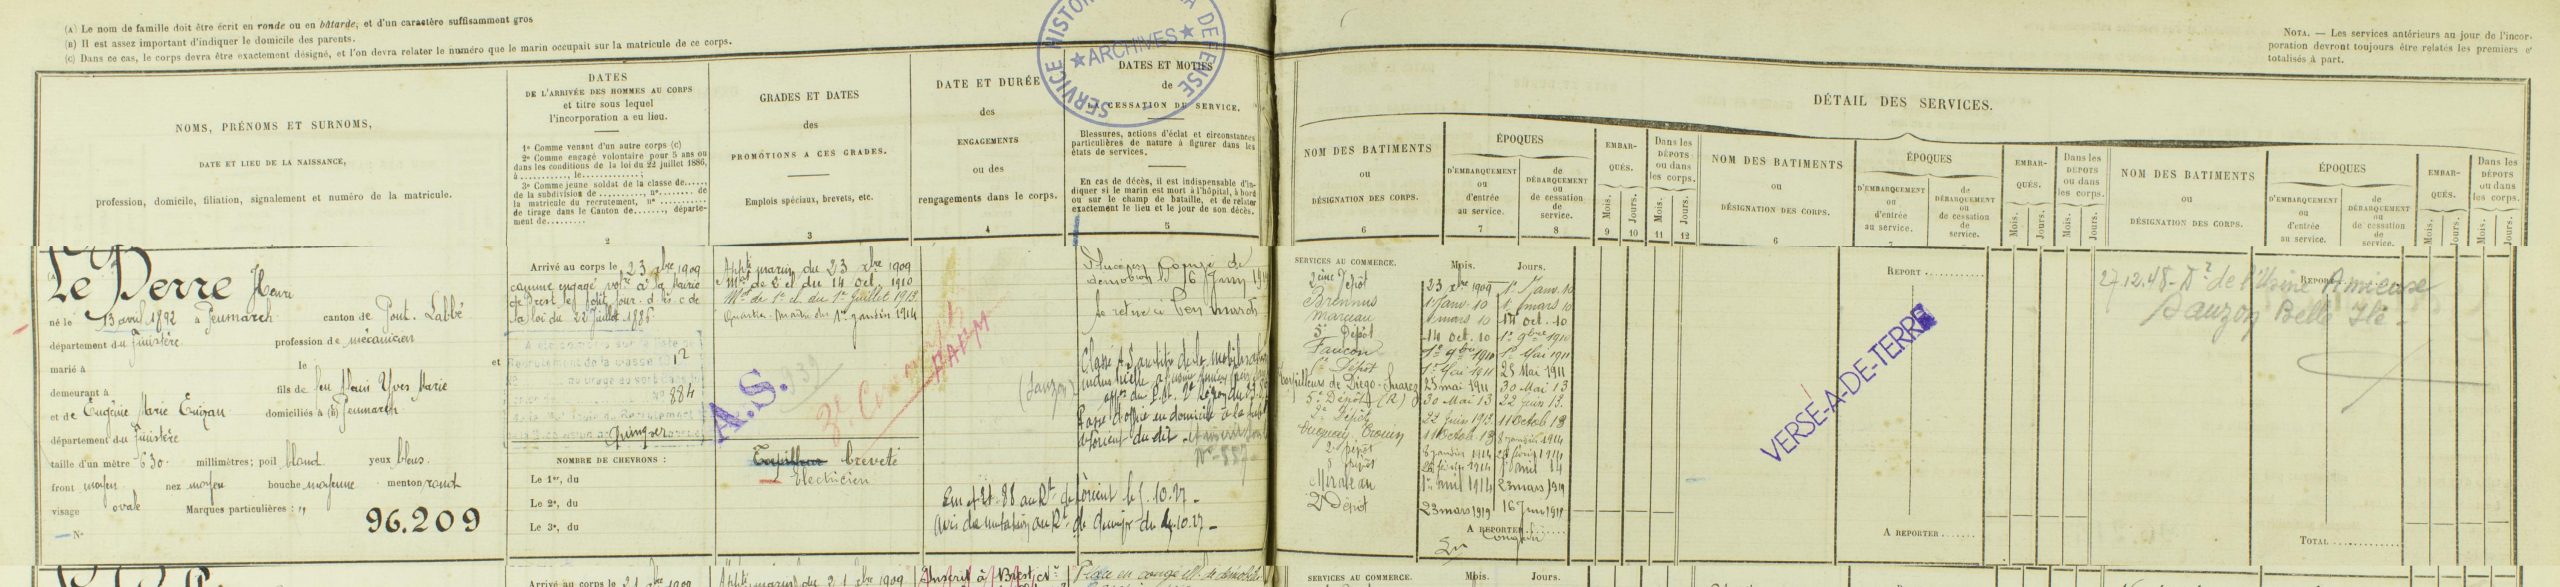 (A) Le nom de famille doit être écrit en ronde ou en bâtarde, et d'un caractère suffisamment gros
(B) Il est assez important d'indiquer le domicile des parents.
(C) Dans ce cas, le corps devra être exactement désigné, et l'on devra relater le numéro que le marin occupait sur la matricule de ce corps.
SERVICE HISTOR DE LA DEFENSE
★ARCHIVES★
NOTA. — Les services antérieurs au jour de l'incor-
poration devront toujours être relatés les premiers e
totalisés à part.
NOMS, PRÉNOMS ET SURNOMS,
DATE ET LIEU DE LA NAISSANCE,
profession, domicile, filiation, signalement et numéro de la matricule.
DATES
DE L'ARRIVÉE DES HOMMES AU CORPS
et titre sous lequel
l'incorporation a eu lieu.
1° Comme venant d'un autre corps (c)
2° Comme engagé volontaire pour 5 ans ou
dans les conditions de la loi du 22 juillet 1886,
à ..........., le ............;
3° Comme jeune soldat de la classe de.....,
de la subdivision de .........., n°....... de
la matricule du recrutement, n° ..........
de tirage dans le Canton de......., départe-
ment de........
2
GRADES ET DATES
des
PROMOTIONS A CES GRADES.
Emplois spéciaux, brevets, etc.
3
DATE ET DURÉE
des
ENGAGEMENTS
ou des
rengagements dans le corps.
4
DATES ET MOTIFS
de
LA CESSATION DU SERVICE.
Blessures, actions d'éclat et circonstances
particulières de nature à figurer dans les
états de services.
En cas de décès, il est indispensable d'in-
diquer si le marin est mort à l'hôpital, à bord
ou sur le champ de bataille, et de relater
exactement le lieu et le jour de son décès.
5
DÉTAIL DES SERVICES.
NOM DES BATIMENTS
ou
DÉSIGNATION DES CORPS.
6
ÉPOQUES
D'EMBARQUEMENT
ou
d'entrée
au service.
7
de
DÉBARQUEMENT
ou
de cessation
de
service.
8
EMBAR-
QUÉS.
Mois.
9
Jours.
10
Dans les
DÉPOTS
ou dans
les corps.
Mois.
11
Jours.
12
NOM DES BATIMENTS
ou
DÉSIGNATION DES CORPS.
6
ÉPOQUES
D'EMBARQUEMENT
ou
d'entrée
au service.
7
de
DÉBARQUEMENT
ou
de cessation
de
service.
EMBAR-
QUÉS.
Mois.
Jours.
Dans les
DÉPOTS
ou dans
les corps.
Mois.
Jours.
NOM DES BATIMENTS
ou
DÉSIGNATION DES CORPS.
ÉPOQUES
D'EMBARQUEMENT
ou
d'entrée
au service.
de
DÉBARQUEMENT
ou
de cessation
de
service.
EMBAR-
QUÉS.
Mois.
Jours.
Dans les
DÉPOTS
ou dans
les corps.
Mois.
Jours.
Le Berre Henri
né le 13 avril 1892 à Penmarch canton de Pont-Labbé
département du Finistère profession de mécanicien
marié à le et
demeurant à fils de feu Henri Yves Marie
et de Eugénie Marie domiciliés à (b) Penmarch
département du Finistère
taille d'un mètre 630 millimètres; poil blond yeux bleus.
front moyen nez moyen bouche moyenne menton rond
visage ovale Marques particulières : "
N° 96.209
Arrivé au corps le 23 xbre 1909
comme engagé volre à la Mairie
de Brest
la loi du 22 Juillet 1886
A été compris sur la liste de
Recrutement de la classe 1912
884
Quimper
NOMBRE DE CHEVRONS :
Le 1er, du
Le 2e, du
Le 3e, du
Apprti marin du 23 xbre 1909
Mot de 2e cl du 14 Oct. 1910
Mot de 1e cl. du 1er Juillet 1913.
Quartier-maître du 1er janvier 1914
A.S.
breveté
Electricien
(Sauzon)
Em et 88 au Rt de Lorient le 5.10.27.
avis de mutation au Rt de Quimper du 10.27.
Placé en Congé de
démobon le 16 Juin 1919
Se retire à Penmarch
SERVICES AU COMMERCE. Mois. Jours.
2eme Dépôt 23 xbre 1909 1er Janv. 10
Brennus 1er Janv. 10 1er mars 10
Marceau 1er mars 10 14 Oct. 10
5e Dépôt 14 oct. 10 1er 9bre 1910
Faucon 1er 9bre 1910 1er Mai 1911
5e Dépôt 1er Mai 1911 25 Mai 1911
Torpilleurs de Diego-Suarez 25 mai 1911 30 Mai 13
5e Dépôt (R) 30 Mai 13 22 Juin 13.
2e Dépôt 22 Juin 1913. 11 Octob 13
Duguay Trouin 11 Octob 13 8 janvier 1914
2e Dépôt 8 janvier 1914 26 février 1914
5 Dépôt 26 février 1914 1er avril 14
Mirabeau 1er avril 1914 23 mars 1919
2e Dépôt 23 mars 1919 16 Juin 1919
A REPORTER......
En Congé
REPORT ............
VERSE-A-DE-TERRE
A REPORTER.......
REPORT
27.12.48 - Dr de l'Usine Amieuse
Sauzon Belle Ile -
TOTAL ............
Arrivé au corps le 21 xbre 1909
Apprti marin du 21 xbre 1909
Inscrit à Brest, No
Placé en congé
SERVICES AU COMMERCE. Mois. Jours.